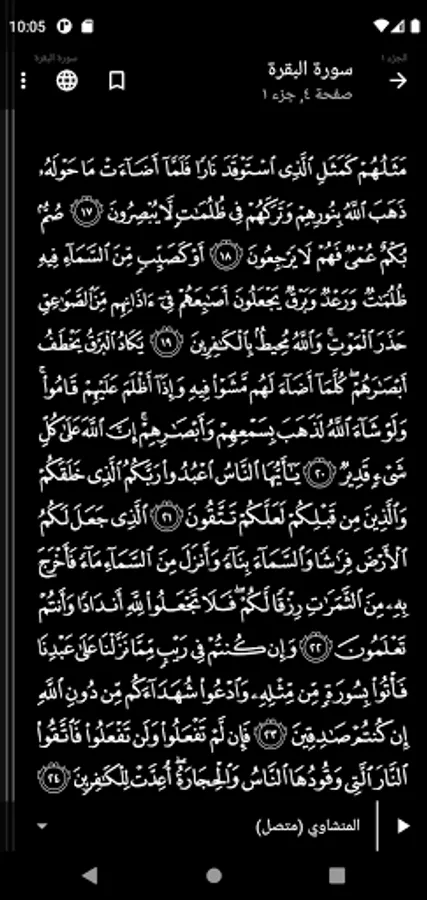 10:05
سورة البقرة
الجزء ١
سورة البقرة
صفحة ٤, جزء ١
مَثَلُهُمْ كَمَثَلِ الَّذِي اسْتَوْقَدَ نَارًا فَلَمَّا أَضَاءَتْ مَا حَوْلَهُ
ذَهَبَ اللَّهُ بِنُورِهِمْ وَتَرَكَهُمْ فِي ظُلُمَٰتٍ لَّا يُبْصِرُونَ ١٧ صُمٌّ
بُكْمٌ عُمْيٌ فَهُمْ لَا يَرْجِعُونَ ١٨ أَوْ كَصَيِّبٍ مِّنَ السَّمَاءِ فِيهِ
ظُلُمَٰتٌ وَرَعْدٌ وَبَرْقٌ يَجْعَلُونَ أَصَٰبِعَهُمْ فِي ءَاذَانِهِم مِّنَ الصَّوَٰعِقِ
حَذَرَ الْمَوْتِ ۚ وَاللَّهُ مُحِيطٌ بِالْكَٰفِرِينَ ١٩ يَكَادُ الْبَرْقُ يَخْطَفُ
أَبْصَٰرَهُمْ ۖ كُلَّمَا أَضَاءَ لَهُم مَّشَوْا فِيهِ وَإِذَا أَظْلَمَ عَلَيْهِمْ قَامُوا ۚ
وَلَوْ شَاءَ اللَّهُ لَذَهَبَ بِسَمْعِهِمْ وَأَبْصَٰرِهِمْ ۚ إِنَّ اللَّهَ عَلَىٰ كُلِّ
شَيْءٍ قَدِيرٌ ٢٠ يَٰأَيُّهَا النَّاسُ اعْبُدُوا رَبَّكُمُ الَّذِي خَلَقَكُمْ
وَالَّذِينَ مِن قَبْلِكُمْ لَعَلَّكُمْ تَتَّقُونَ ٢١ الَّذِي جَعَلَ لَكُمُ
الْأَرْضَ فِرَٰشًا وَالسَّمَاءَ بِنَاءً وَأَنزَلَ مِنَ السَّمَاءِ مَاءً فَأَخْرَجَ
بِهِ مِنَ الثَّمَرَٰتِ رِزْقًا لَّكُمْ ۖ فَلَا تَجْعَلُوا لِلَّهِ أَندَادًا وَأَنتُمْ
تَعْلَمُونَ ٢٢ وَإِن كُنتُمْ فِي رَيْبٍ مِّمَّا نَزَّلْنَا عَلَىٰ عَبْدِنَا
فَأْتُوا بِسُورَةٍ مِّن مِّثْلِهِ وَادْعُوا شُهَدَاءَكُم مِّن دُونِ اللَّهِ
إِن كُنتُمْ صَٰدِقِينَ ٢٣ فَإِن لَّمْ تَفْعَلُوا وَلَن تَفْعَلُوا فَاتَّقُوا
النَّارَ الَّتِي وَقُودُهَا النَّاسُ وَالْحِجَارَةُ ۖ أُعِدَّتْ لِلْكَٰفِرِينَ ٢٤
المنشاوي (متصل)